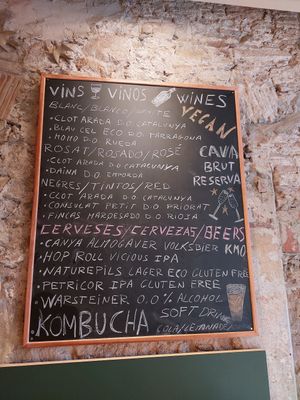 VINS VINOS WINES
BLANC/BLANCO/WHITE
VEGAN
• CLOT ARADA D.O CATALUNYA
• BLAU CEL ECO D.O TARRAGONA
• MOMO D.O RUEDA
ROSAT/ROSADO/ROSÉ
• CLOT ARADA D.O CATALUNYA
• DAINA D.O EMPORDA
CAVA
BRUT
RESERVA
NEGRES/TINTOS/RED
• CLOT ARADA D.O CATALUNYA
• CONSULAT PETIT D.O PRIORAT
• FINCAS MARDESADO D.O RIOJA
CERVESES/CERVEZAS/BEERS
• CANYA ALMOGAVER VOLKSBIER KM0
• HOP ROLL VICIOUS IPA
• NATUREPILS LAGER ECO GLUTEN FREE
• PETRICOR IPA GLUTEN FREE
• WARSTEINER 0.0% ALCOHOL
KOMBUCHA
SOFT DRINK
COLA/LEMANADE/